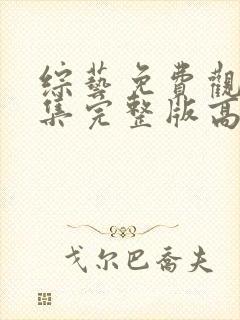 綜藝免費觀
集完整版高
戈尔巴喬夫